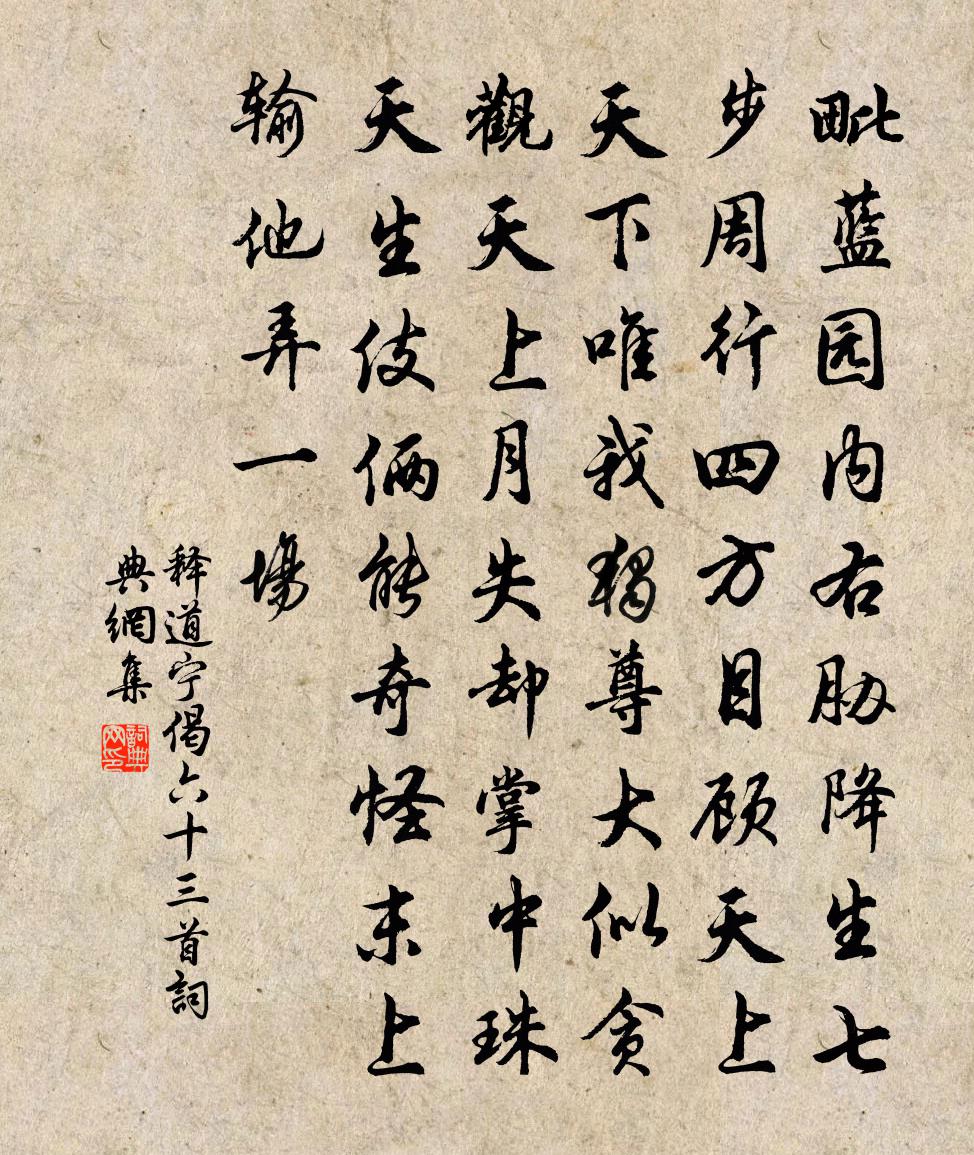 毗蓝园内右胁降生七
步周行四方目顾天上
天下唯我独尊大似贪
觀天上月失却掌中珠
天生伎俩能奇怪末上
输他弄一場
释道宁偈六十三首詞
典網集
詞典网印